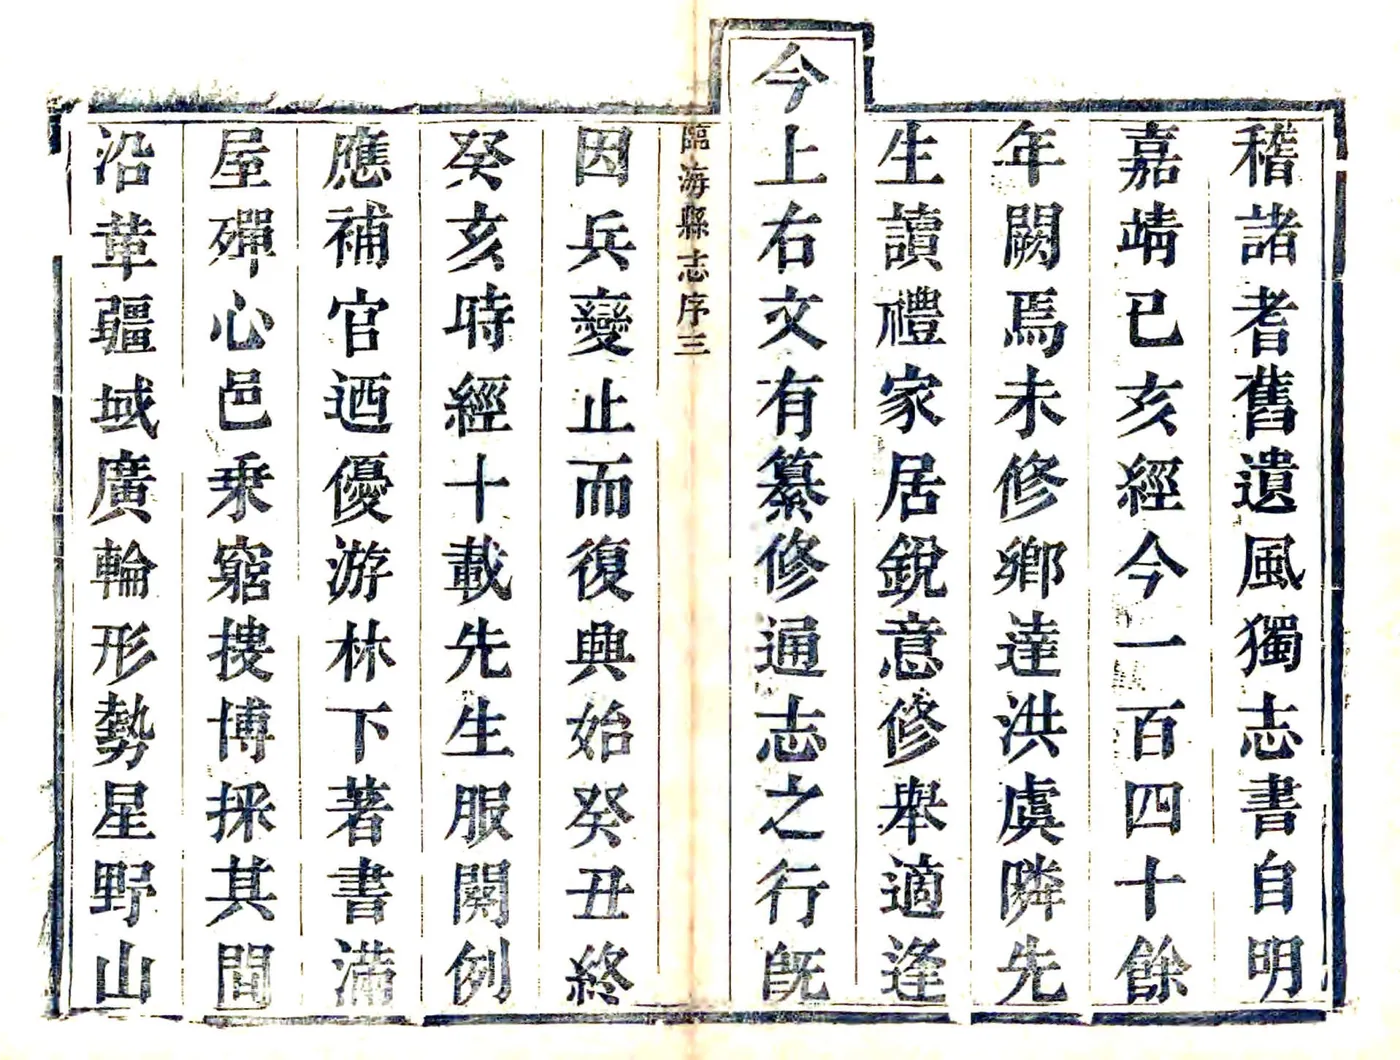 稽諸耆舊遺風獨志書自明
嘉靖已亥經今一百四十餘
年闕焉未修鄉達洪虞隣先
生讀禮家居銳意修舉適逢
今上右文有纂修通志之行旣
臨海縣志序三
因兵變止而復興始癸丑終
癸亥時經十載先生服闋例
應補官迺優游林下著書滿
屋殫心邑乘窮搜博採其間
沿革疆域廣輪形勢星野山